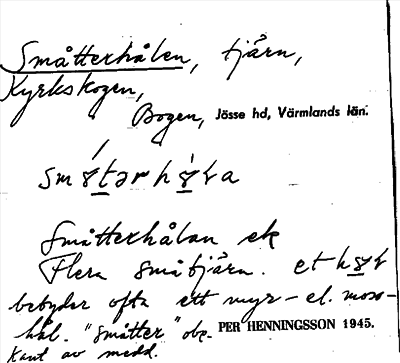 Småtterhålen, tjärn,
Kyrkskogen,
Bogen, Jösse hd, Värmlands län.
sm8̱ṯərh8̱ɽa
Småtterhålan ek
Flera småtjärn. et h8̱ɽ
betyder ofta ett myr- el. moss-
hål. "småtter" obe-
kant av medd. PER HENNINGSSON 1945.